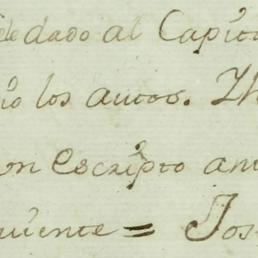 de dado al Capit
io los autos. Y
un escripto an
uiente = Jos